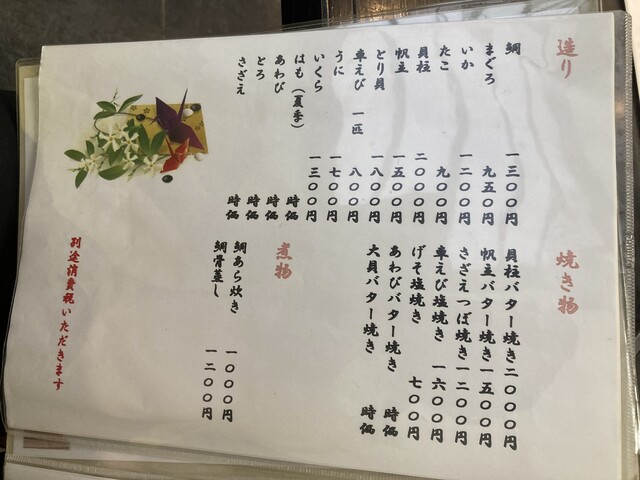 造り
鯛 一三〇〇円
まぐろ 九五〇円
いか 一二〇〇円
たこ 九〇〇円
貝柱 二〇〇〇円
帆立 一五〇〇円
とり貝 一八〇〇円
車えび 一匹 八〇〇円
うに 一七〇〇円
いくら 一三〇〇円
はも（夏季） 時価
あわび 時価
とろ 時価
さざえ 時価
焼き物
貝柱バター焼き二〇〇〇円
帆立バター焼き一五〇〇円
さざえつぼ焼き一二〇〇円
車えび塩焼き 一六〇〇円
げそ塩焼き 七〇〇円
あわびバター焼き 時価
大貝バター焼き 時価
煮物
鯛あら炊き 一〇〇〇円
鯛骨蒸し 一二〇〇円
別途消費税いただきます